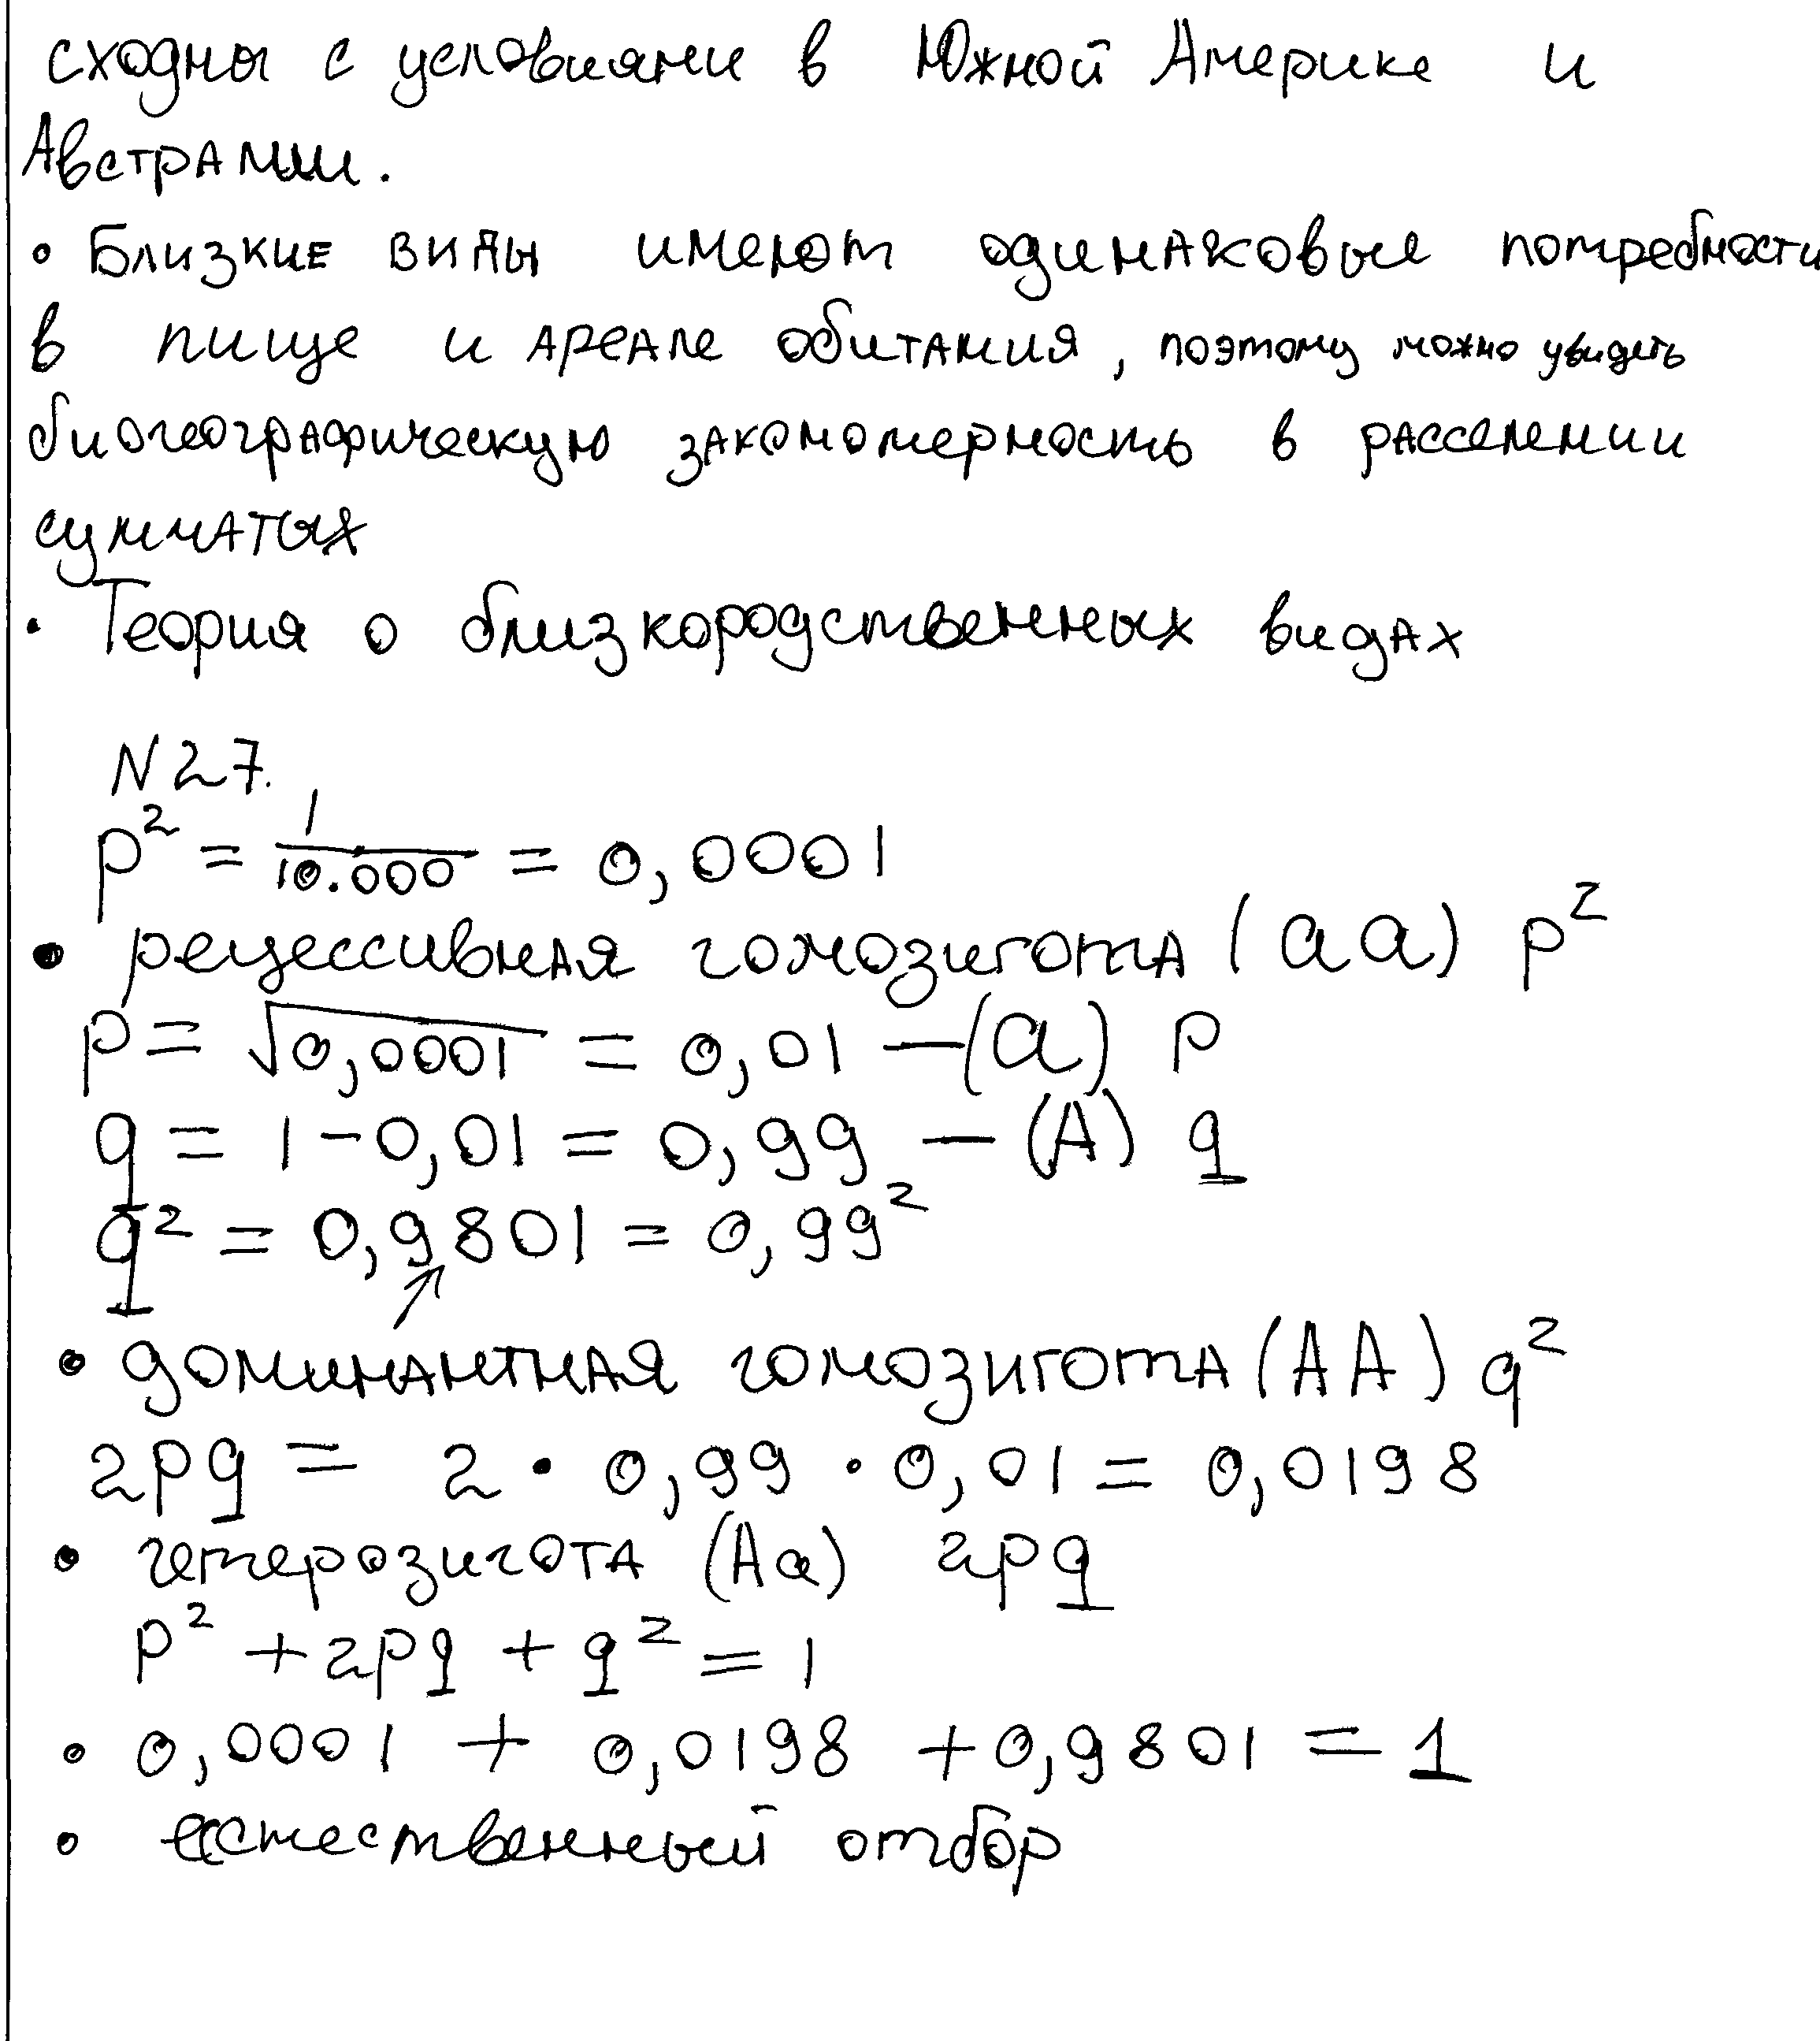 сходны с условиями в Южной Америке и
Австралии.
• Близкие виды имеют одинаковые потребности
в пище и ареале обитания, поэтому можно увидеть
биогеографическую закономерность в расселении
сумчатых
• Теория о близкородственных видах
N27.
p² = 1/10.000 = 0,0001
• рецессивная гомозигота (aa) p²
p = √0,0001 = 0,01 — (a) p
q = 1 - 0,01 = 0,99 — (A) q
q² = 0,9801 = 0,99²
• доминантная гомозигота (AA) q²
2pq = 2 · 0,99 · 0,01 = 0,0198
• гетерозигота (Aa) 2pq
p² + 2pq + q² = 1
• 0,0001 + 0,0198 + 0,9801 = 1
• естественный отбор